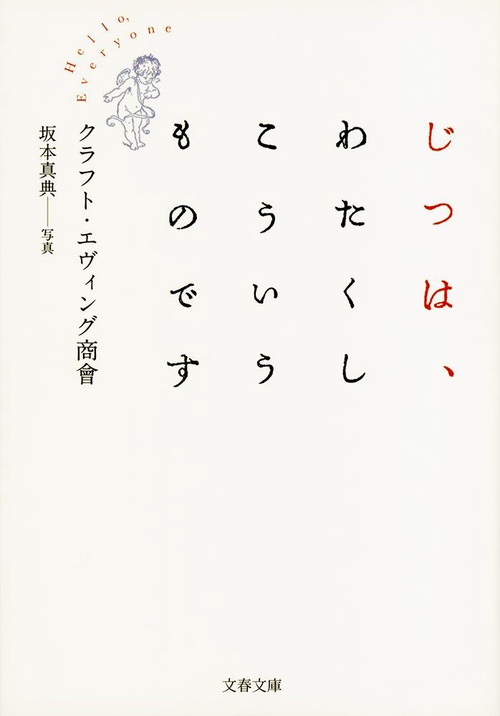 じつは、
わたくし
こういう
ものです
Hello,
Everyone
クラフト・エヴィング商會
坂本真典——写真
文春文庫